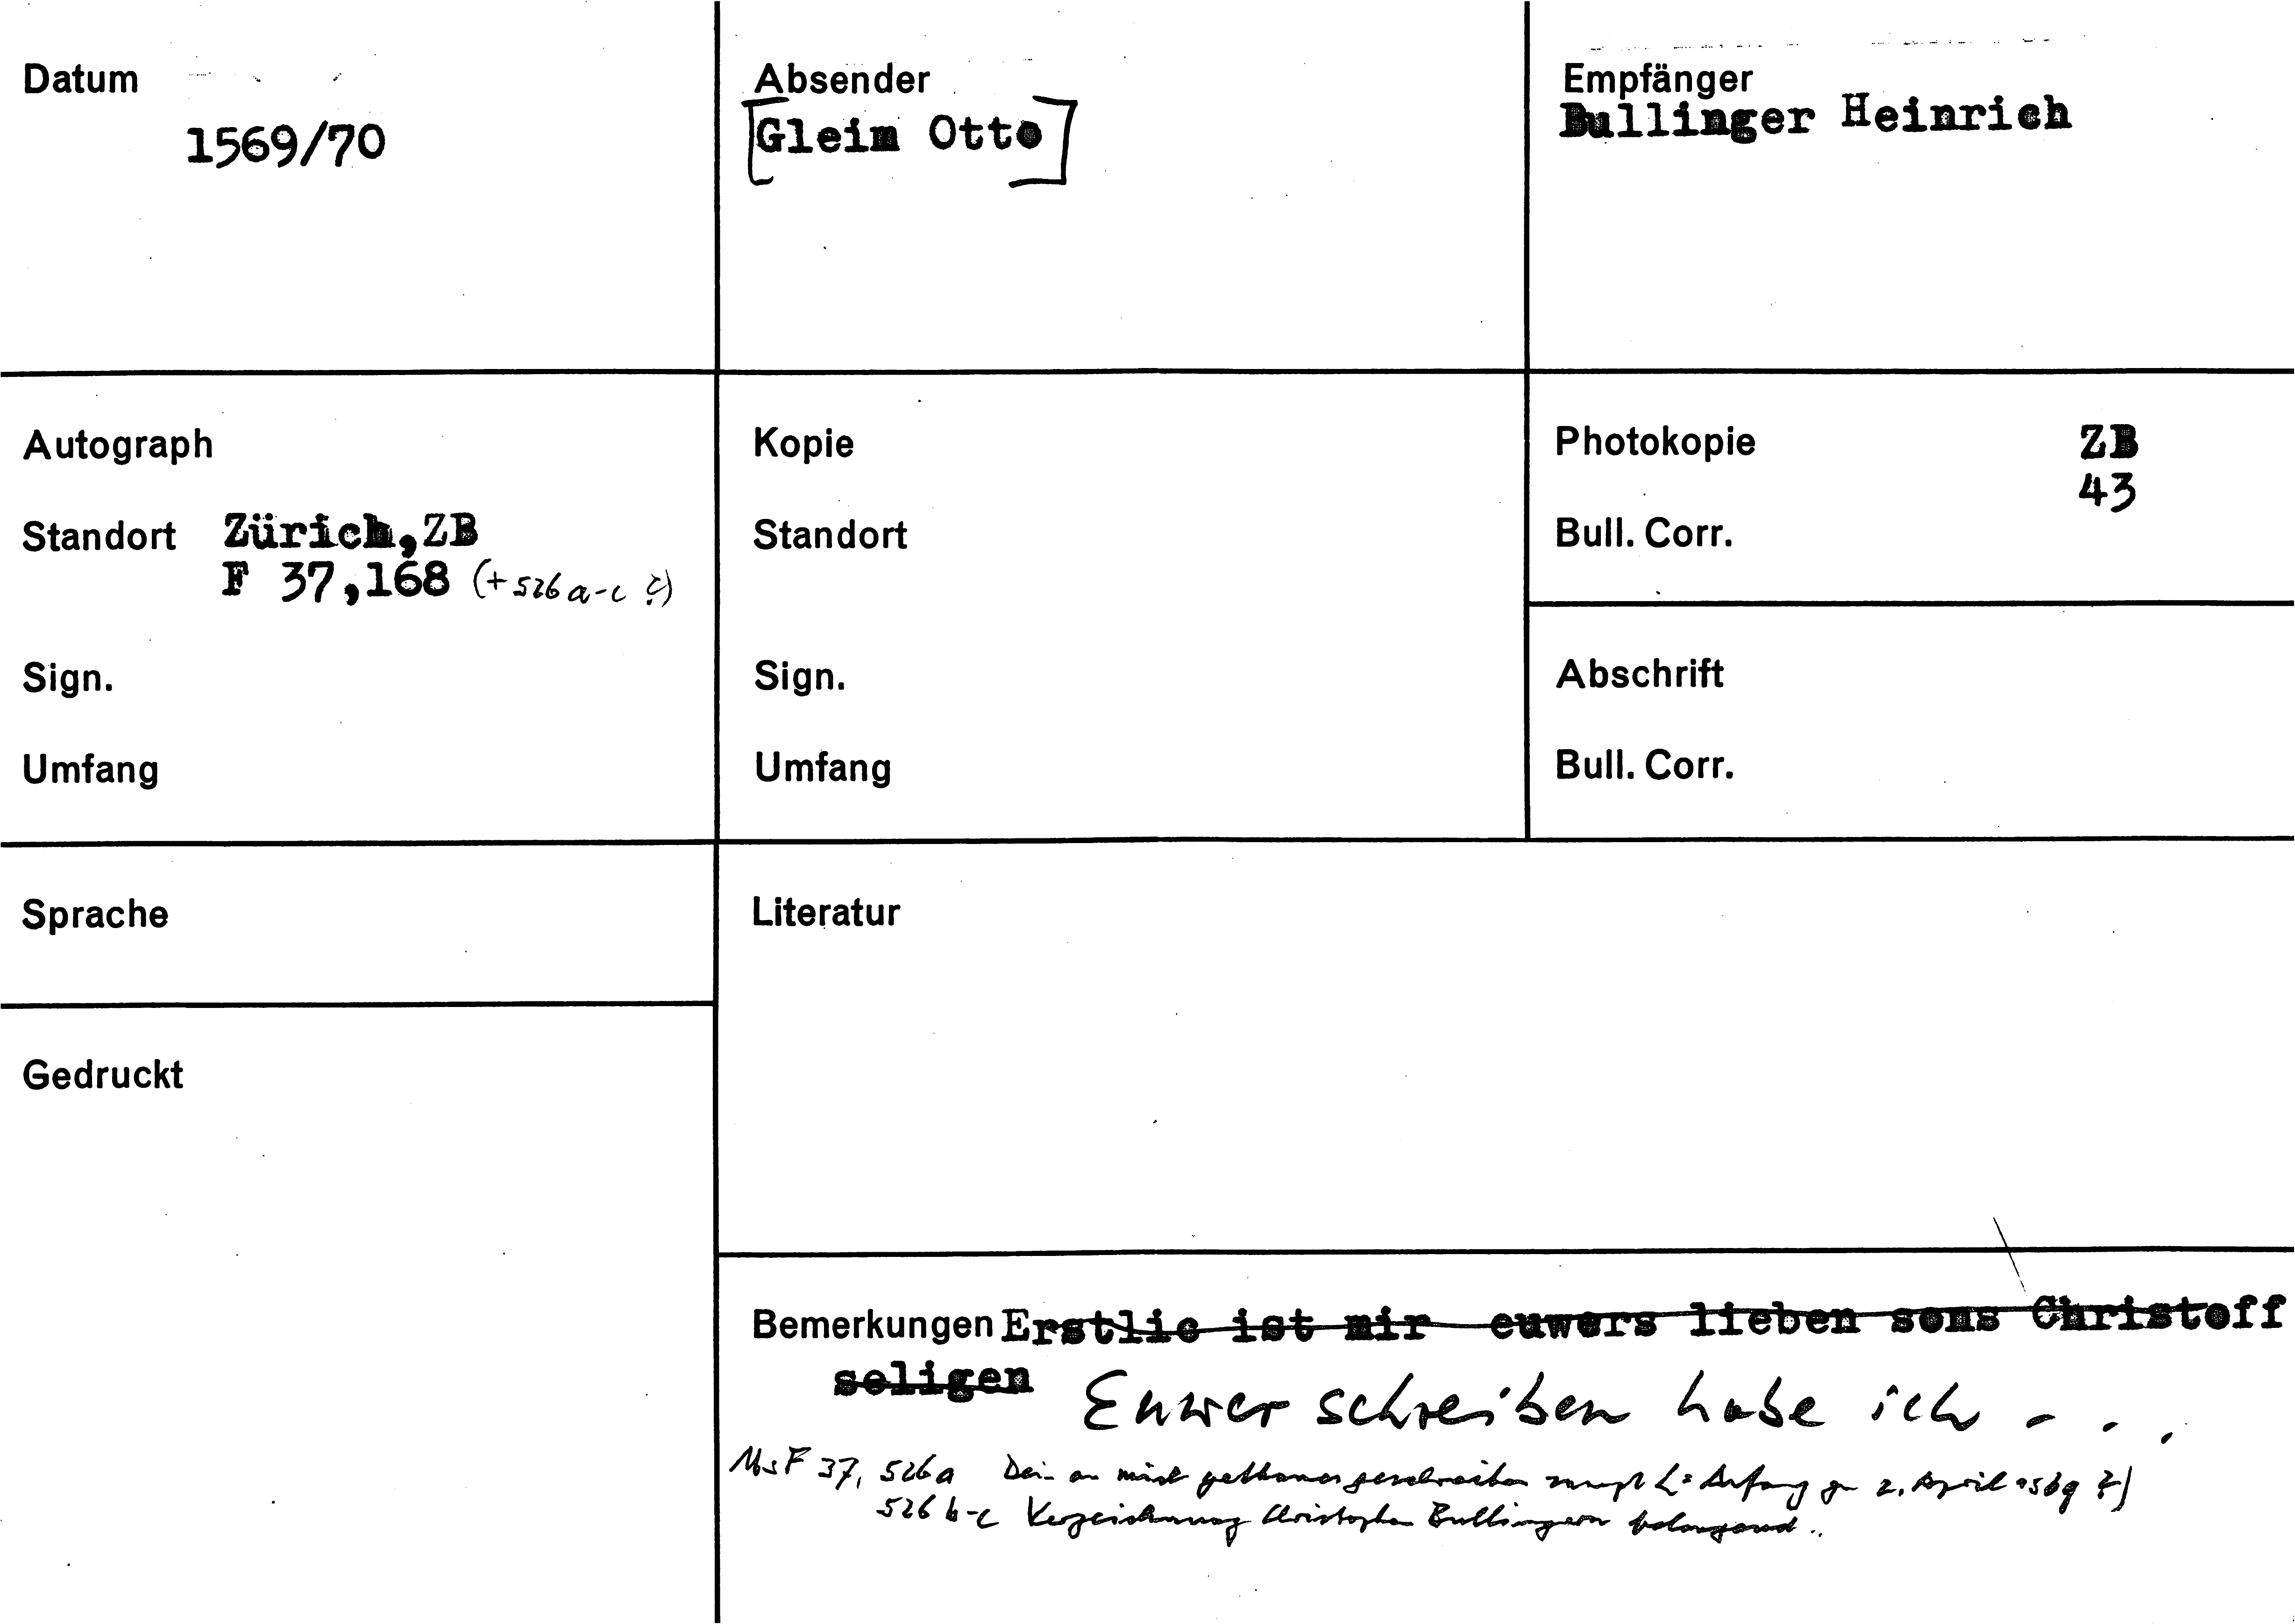 Datum
1569/70
Absender
[Gleim Otto]
Empfänger
Bullinger Heinrich
Autograph
Standort Zürich,ZB
F 37,168 (+ 526 a-c ?)
Sign.
Umfang
Kopie
Standort
Sign.
Umfang
Photokopie ZB
43
Bull. Corr.
Abschrift
Bull. Corr.
Sprache
Literatur
Gedruckt
Bemerkungen Erstlic ist mir euwers lieben sons Christoff
seligen Euwer schreiben habe ich - . .
Ms F 37, 526a an gethones geschreiben Anfang 2. April 1569 ?)
526 b-c Verzeichnung Christophen Bullingern belangend ..